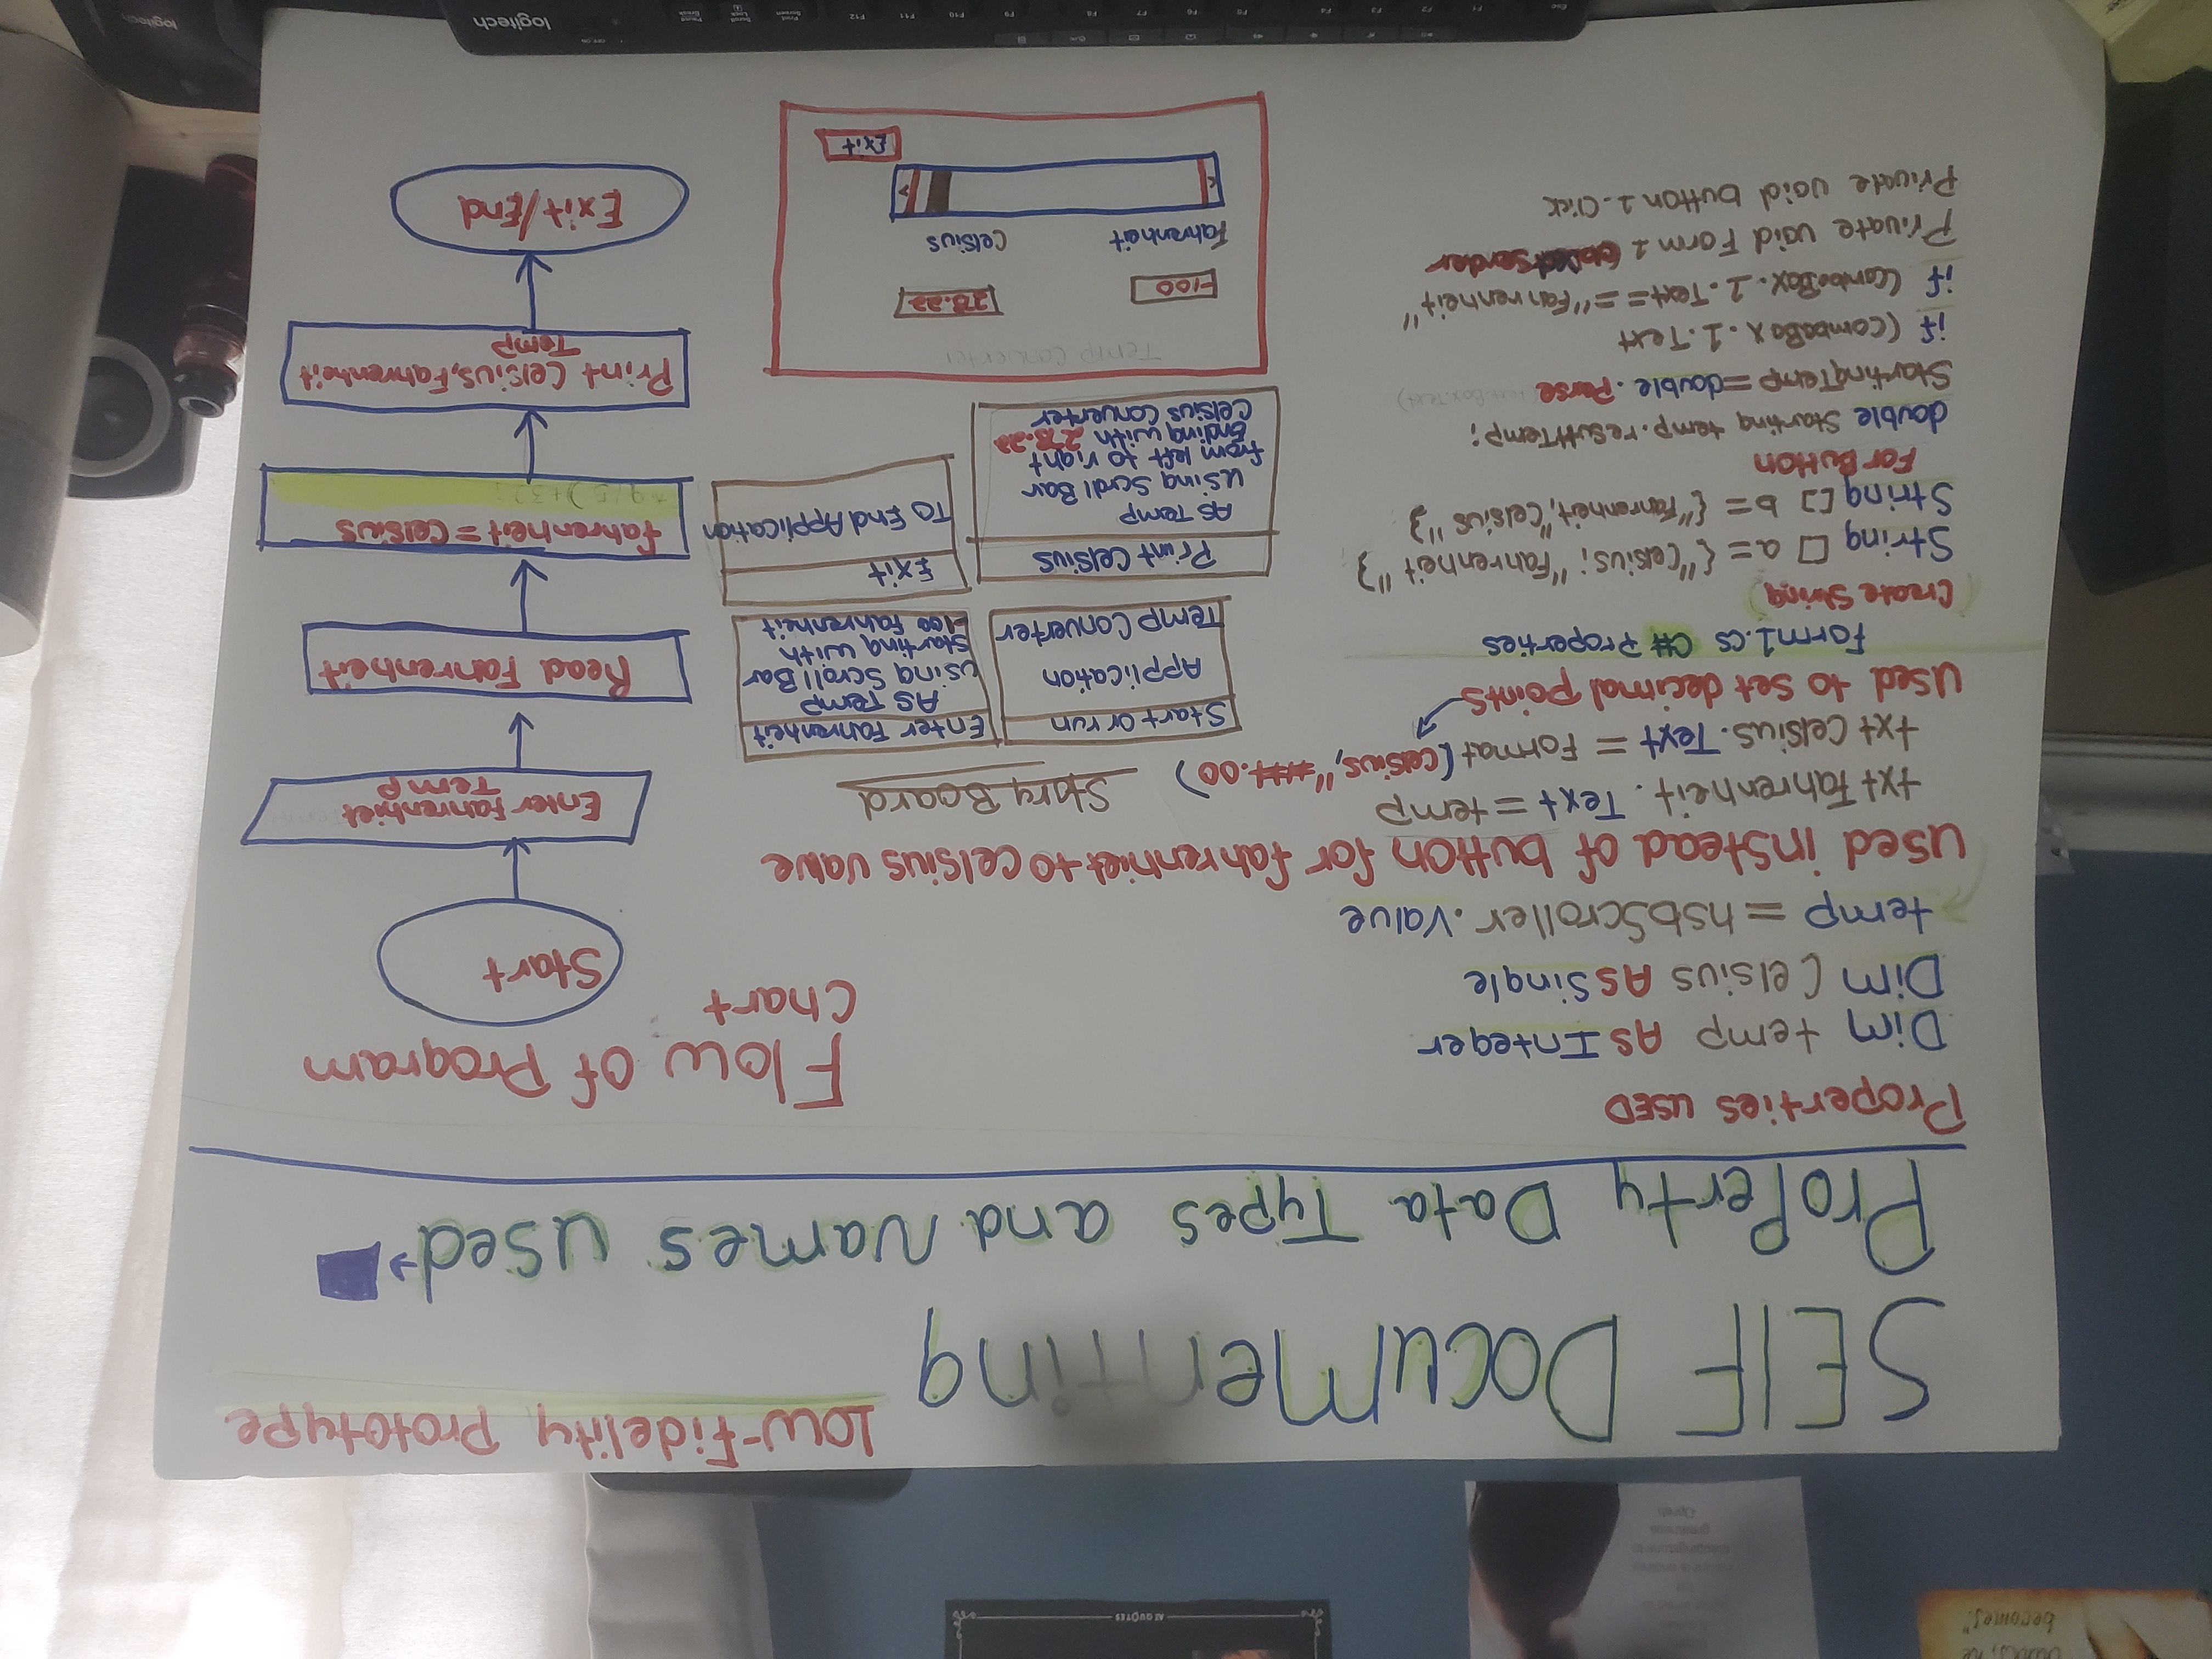 thinks, he
becomes."
is another
steppingstone to
greatness
Oprah
AZ QUOTES
Low-Fidelity Prototype
SElF Documenting
Property Data Types and Names used→
Properties USED
Dim temp AS Integer
Dim Celsius AS Single
temp = hsbScroller.Value
used instead of button for fahrenhiet to celsius value
txt Fahrenheit. Text = temp
txt Celsius. Text = Format (celsius,"###.00)
used to set decimal points
Form1.cs C# Properties
(Create String)
String [] a= {"Celsius; "Fahrenheit "}
String [] b= {"Fahrenheit,"Celsius "}
For Button
double Starting temp.resultTemp;
StartingTemp=double.Parse
if (ComboBox.1.Text
if (ComboBox.1.Text=="Fahrenheit"
Private void Form 1 sender
Private void button 1.Click
Story Board
Start or run
Application
Temp Converter
Enter Fahrenheit
AS Temp
using Scroll Bar
Starting with
-100 Fahrenheit
Print Celsius
AS Temp
using Scroll Bar
from left to right
Ending with 273.22
Celsius Converter
Exit
To End Application
Temp Converter
-100
273.22
Fahrenheit
Celsius
<
>
Exit
Flow of Program
Chart
Start
Enter Fahrenhiet
Temp
Read Fahrenheit
fahrenheit = Celsius
* 9/5)+32;
Print Celsius, Fahrenheit
Temp
Exit/End
Esc F1 F2 F3 F4 F5 F6 F7 F8 F9 F10 F11 F12 Print Screen Scroll Lock Pause Break
logitech
logitech